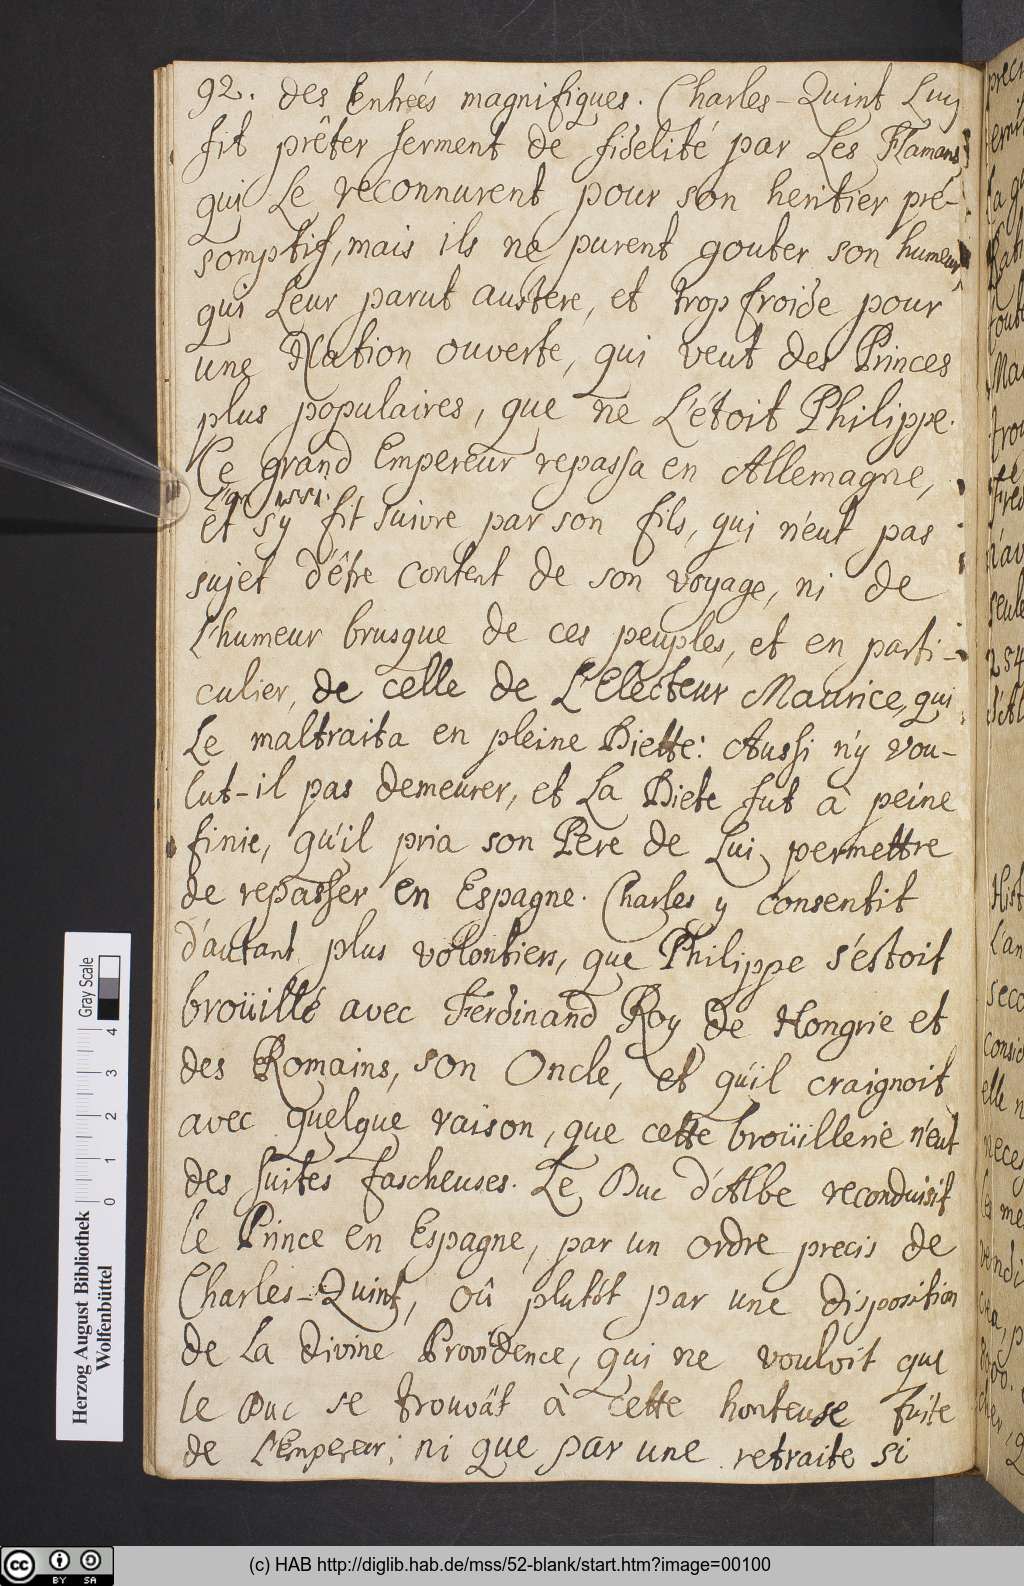 92. des Entrées magnifiques. Charles-Quint Luy
fit prêter serment de fidelité par Les Flamans,
qui Le reconnurent pour son heritier pré-
somptif, mais ils ne purent gouter son humeur,
qui Leur parut austere, et trop froide pour
une Nation ouverte, qui veut des Princes
plus populaires, que ne L'étoit Philippe.
Ce grand Empereur repassa en Allemagne,
L'an 1551.
et s'y fit suivre par son fils, qui n'eut pas
sujet d'être content de son voyage, ni de
L'humeur brusque de ces peuples, et en parti-
culier, de celle de L'Electeur Maurice, qui
Le maltraita en pleine Diette: Aussi n'y vou-
lut-il pas demeurer, et La Diete fut à peine
finie, qu'il pria son Pere de Lui permettre
de repasser en Espagne. Charles y consentit
d'autant plus volontiers, que Philippe s'estoit
broüillé avec Ferdinand Roy de Hongrie et
des Romains, son Oncle, et qu'il craignoit
avec quelque raison, que cette broüillerie n'eut
des suites fascheuses. Le Duc d'Albe reconduisit
le Prince en Espagne, par un ordre precis de
Charles-Quint, oû plutôt par une disposition
de La divine Providence, qui ne vouloit que
le Duc se trouvât à cette honteuse fuite
de L'Empereur; ni que par une retraite si
Herzog August Bibliothek
Wolfenbüttel
0 1 2 3 4
Gray Scale
(c) HAB http://diglib.hab.de/mss/52-blank/start.htm?image=00100
cc BY SA